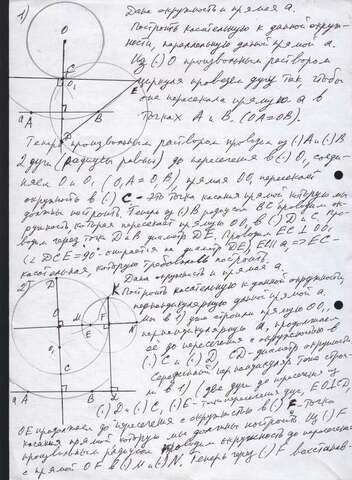 1)
Дана окружность и прямая a.
Построить касательную к данной окруж-
ности, параллельную данной прямой a.
Из (·) O произвольным раствором
циркуля проведём дугу так, чтобы
она пересекала прямую a в
точках A и B. (OA=OB).
Теперь произвольным раствором проведём из (·) A и (·) B
2 дуги (радиусы равны) до пересечения в (·) O, соеди-
няем O и O₁ (O₁A=O₁B), прямая OO₁ пересекает
окружность в (·) C - это точка касания прямой которую мы
должны построить. Теперь из (·) B радиусом BC проводим ок-
ружность которая пересекает прямую OO₁ в (·) D и C. Про-
водим через точки D и B диаметр DE. Проводим EC ⊥ OO₁
(∠ DCE = 90° - опирается на диаметр DE), EC ∥ a, ⇒ EC -
касательная, которую требовалось построить.
2)
Дана окружность и прямая a.
Построить касательную к данной окружности,
перпендикулярную данной прямой a.
как в 1) доп строим прямую OO₁,
перпендикулярную a, продолжаем
её до пересечения с окружностью в
(·) C и (·) D. CD - диаметр окружности.
Серединный перпендикуляр тоже стро-
им в 1) (две дуги до пересечения из
(·) D и (·) C, (·) E - точка пересечения дуг, EO ⊥ CD,
OE продолжаем до пересечения с окружностью в (·) F - точка
касания прямой которую мы должны построить. Из (·) F
произвольным радиусом проводим окружность до пересечения
с прямой OF в (·) M и (·) N. Теперь через (·) F восстанав-
O
C
O₁
E
a
A
B
D
D
K
O
M
E
F
N
O₁
C
a
A
B